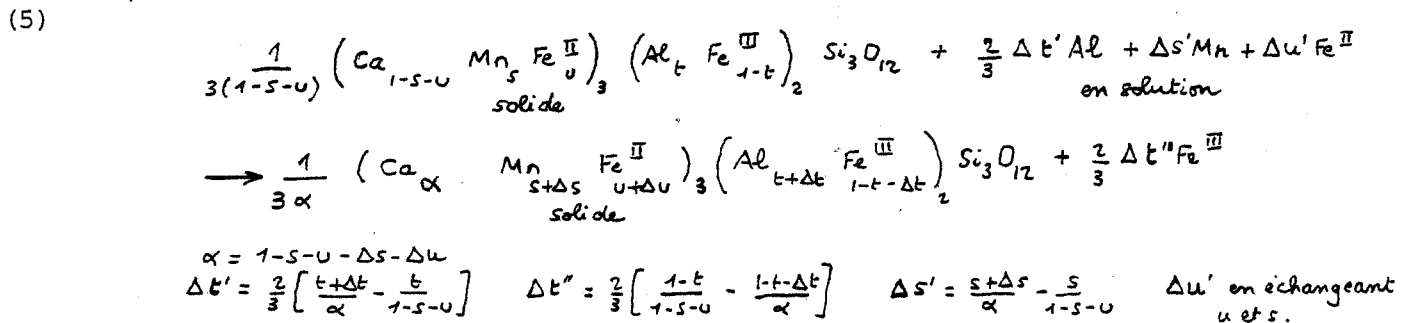 (5)
1/3(1-s-u) (Ca_{1-s-u} Mn_s Fe^{II}_u)_3 (Al_t Fe^{III}_{1-t})_2 Si_3O_{12} + 2/3 Δt' Al + Δs' Mn + Δu' Fe^{II}
solide en solution
⟶ 1/3α (Ca_α Mn_{s+Δs} Fe^{II}_{u+Δu})_3 (Al_{t+Δt} Fe^{III}_{1-t-Δt})_2 Si_3O_{12} + 2/3 Δt" Fe^{III}
solide
α = 1-s-u-Δs-Δu
Δt' = 2/3 [t+Δt/α - t/1-s-u] Δt" = 2/3 [1-t/1-s-u - 1-t-Δt/α] Δs' = s+Δs/α - s/1-s-u Δu' en échangeant
u et s.